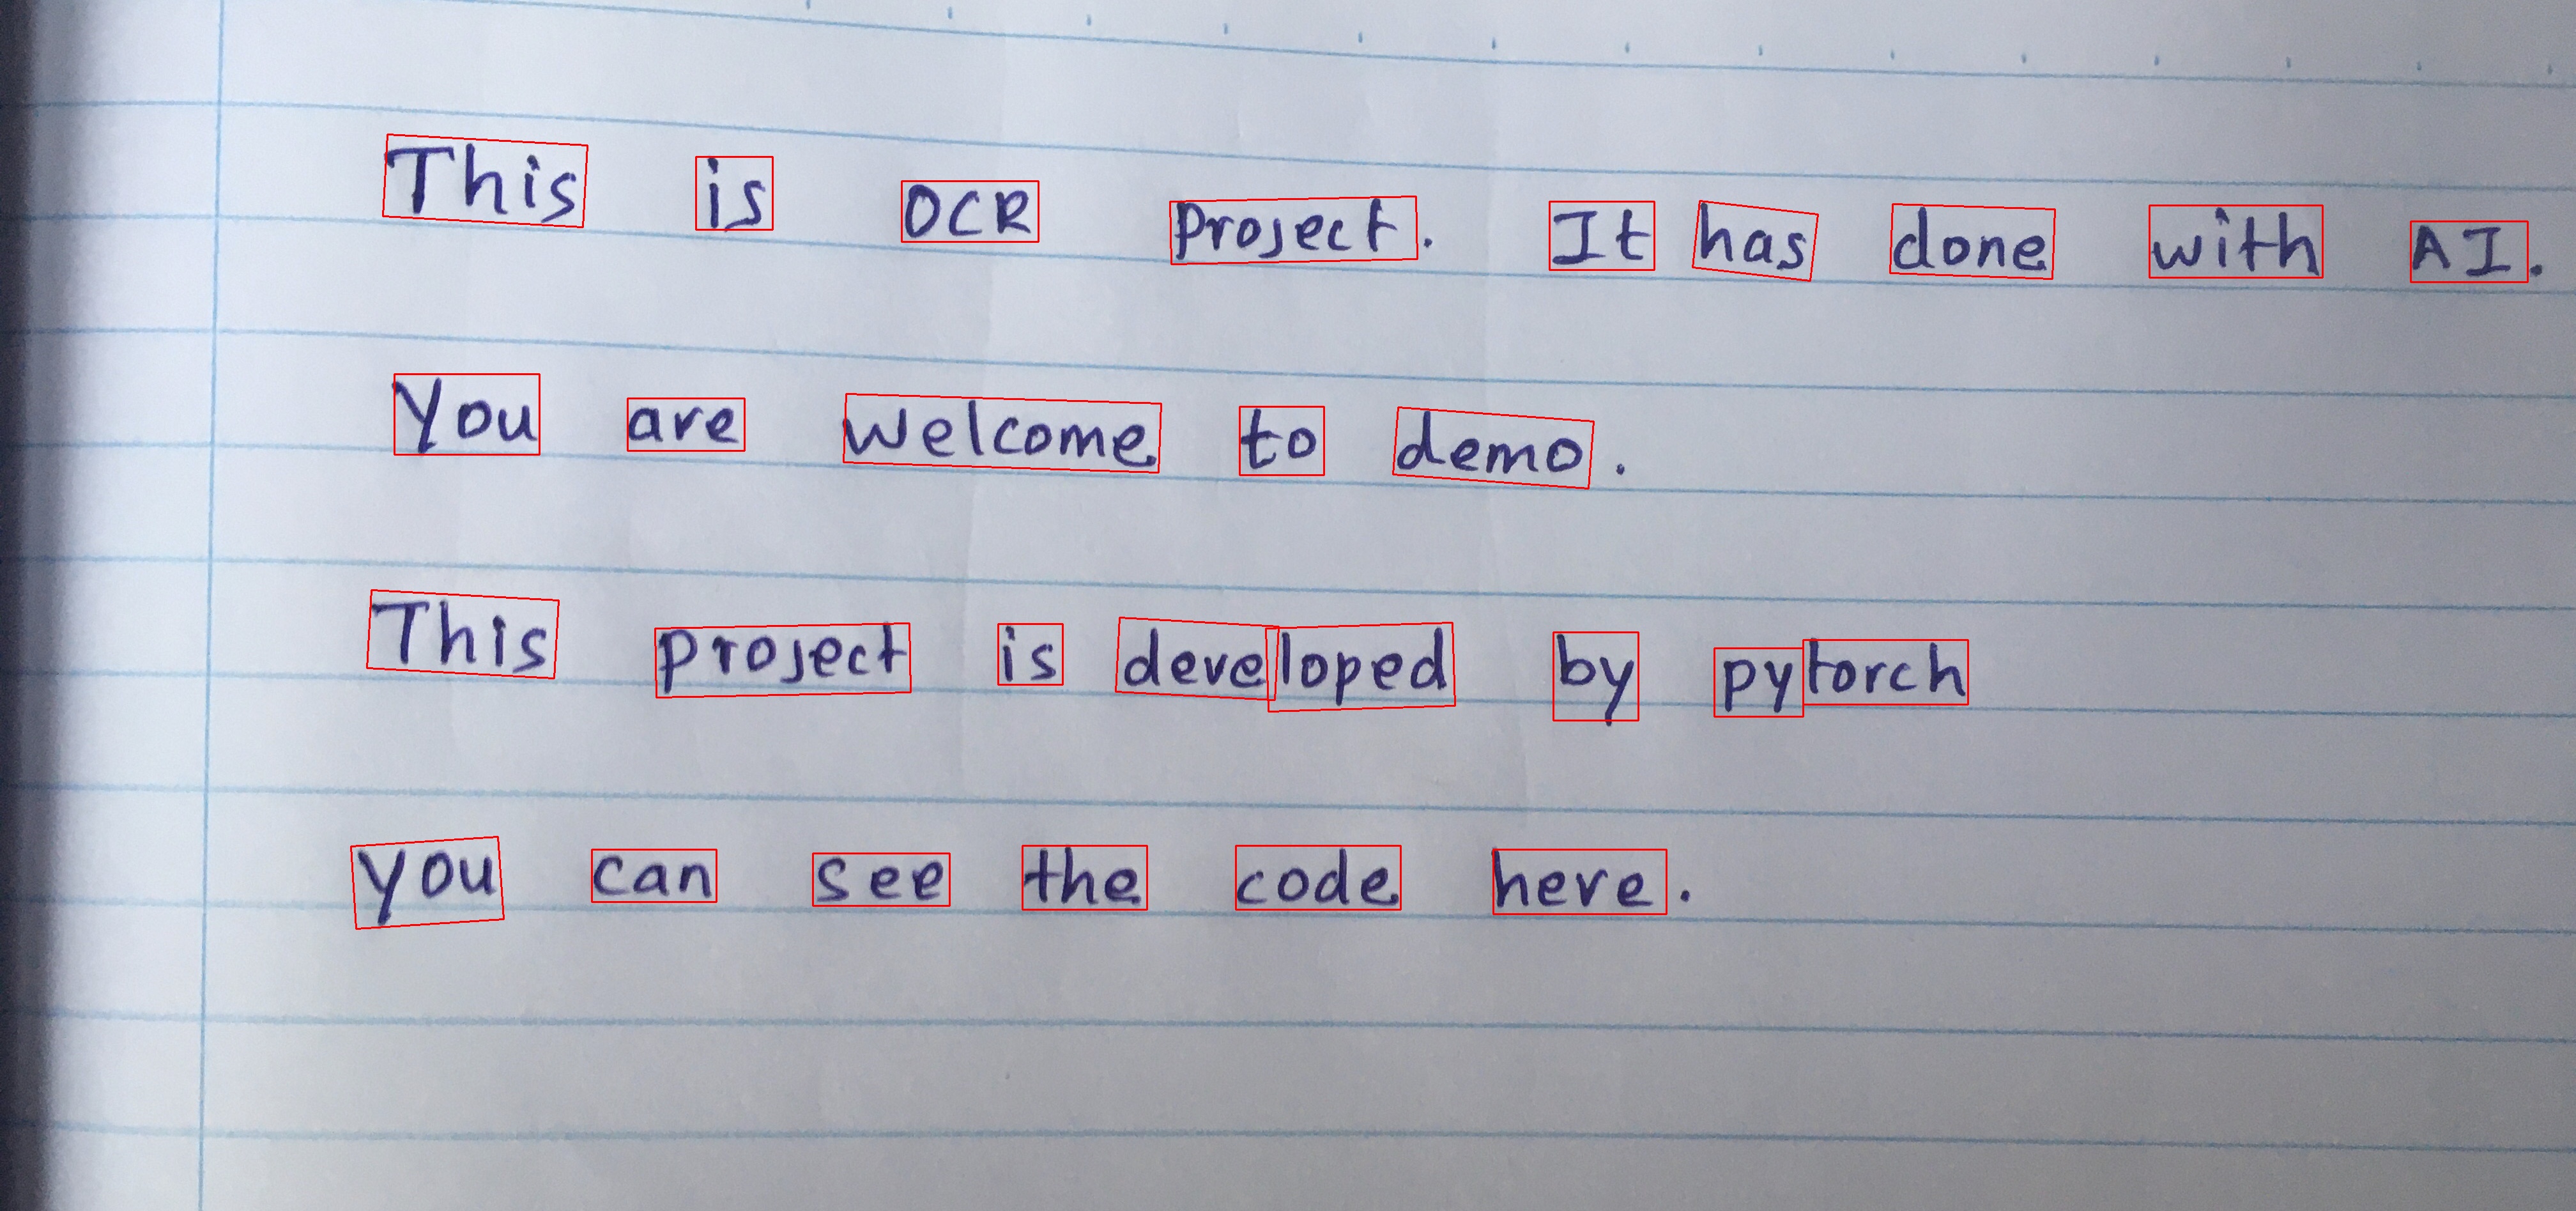 This is OCR Project. It has done with AI.
You are welcome to demo.
This project is developed by pytorch
you can see the code here.